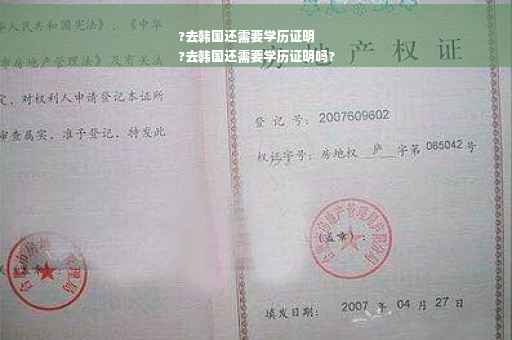 ?去韩国还需要学历证明
?去韩国还需要学历证明吗?
华人民共和国宪法》、《中华
市房地产管理法》及有关法
定，对权利人申请登记本证所
审查属实，准予登记，特发此
房地产权证
登记号：2007609602
权证字号：房地权 庐 字第 065042 号
(盖章)：
填发日期： 2007 年 04 月 27 日